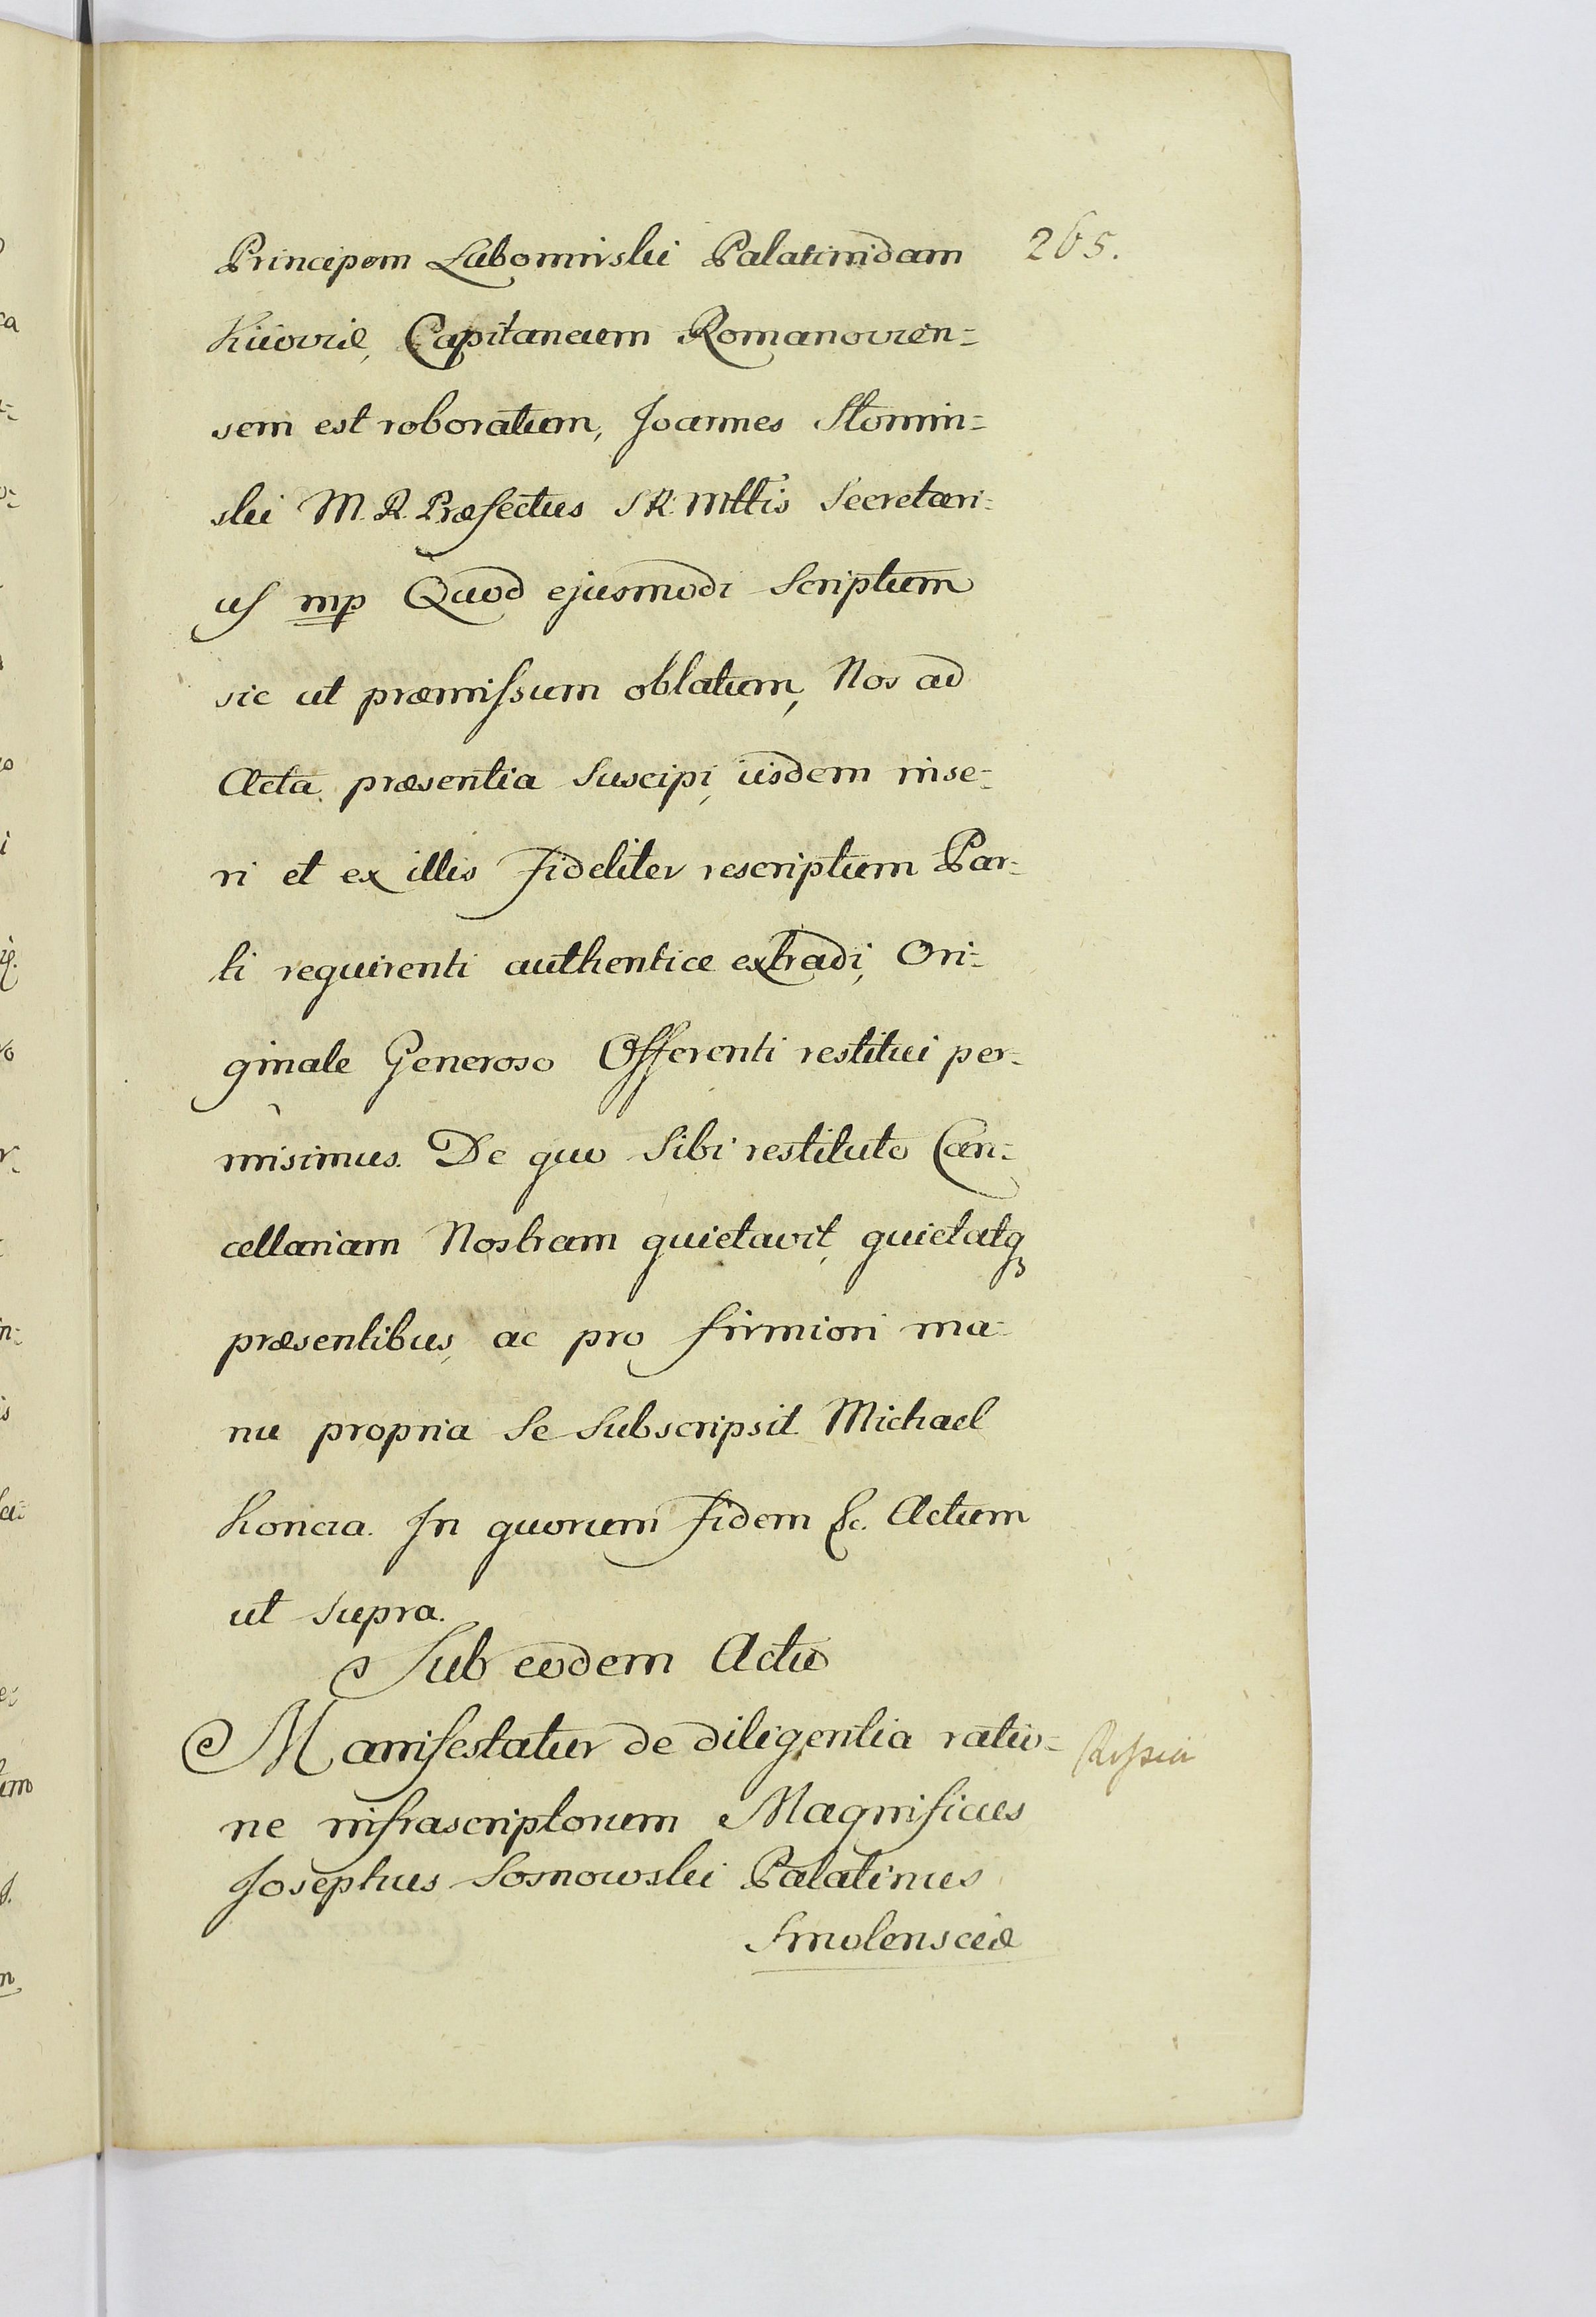 265.
Principem Lubomirski Palatinidam
Kiioviæ, Capitaneum Romanovien=
sem est roboratum, Joannes Słomin=
ski M. R. Præfectus S R Mttis Secretari=
us mp Quod ejusmodi Scriptum
sic ut præmissum oblatum, Nos ad
Acta præsentia Suscipi, iisdem inse=
ri et ex illis fideliter rescriptum Par=
ti requirenti authentice extradi, Ori=
ginale Generoso Offerenti restitui per=
misimus. De quo Sibi restituto Can=
cellariam Nostram quietavit, quietatq
præsentibus, ac pro firmiori ma=
nu propria Se Subscripsit Michael
Koncza. In quorum fidem &c. Actum
ut supra.
Sub eodem Actu
Manifestatur de diligentia ratio=
ne infrascriptorum Magnificus
Josephus Sosnowski Palatinus
Smolensciæ